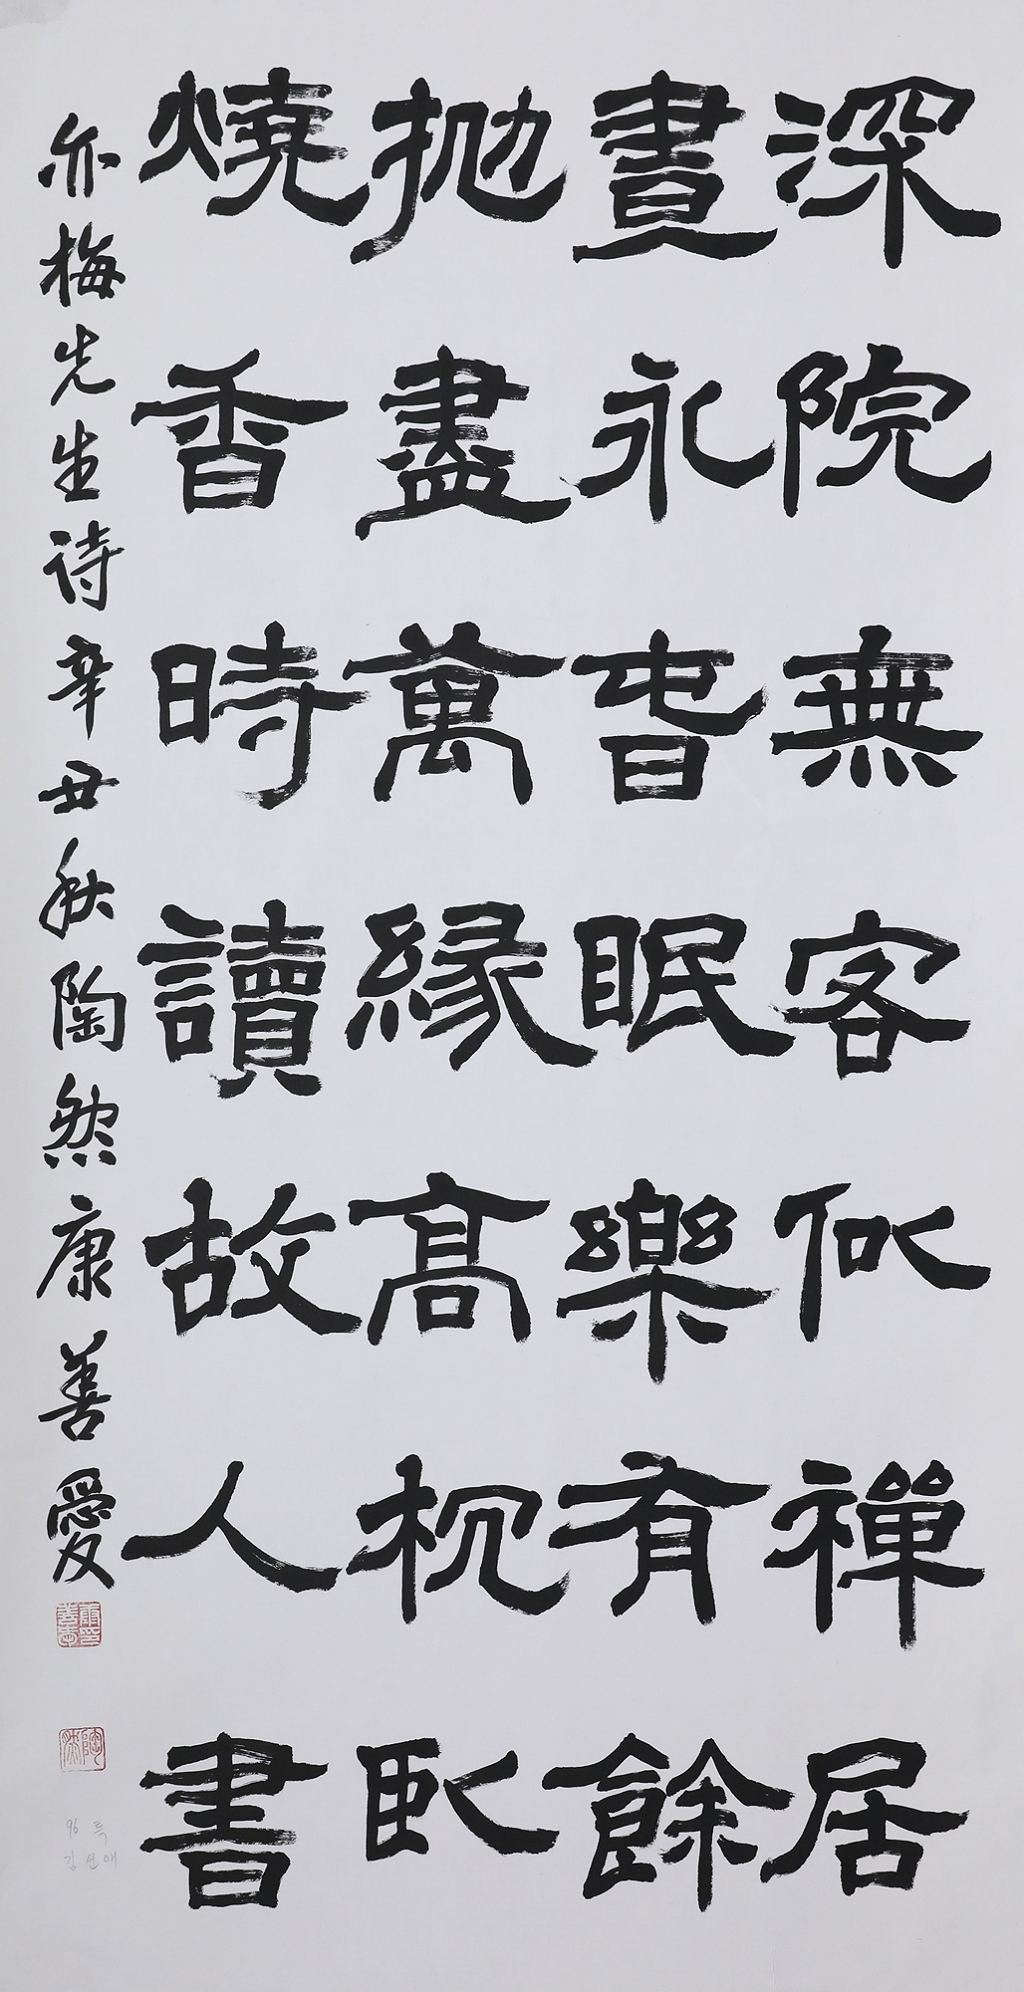 深院無客似禪居
晝永旾眠樂有餘
拋盡萬緣高枕臥
燒香時讀故人書
亦梅先生詩辛丑秋陶然康善愛
康印善愛
陶然
96 특
김 선애